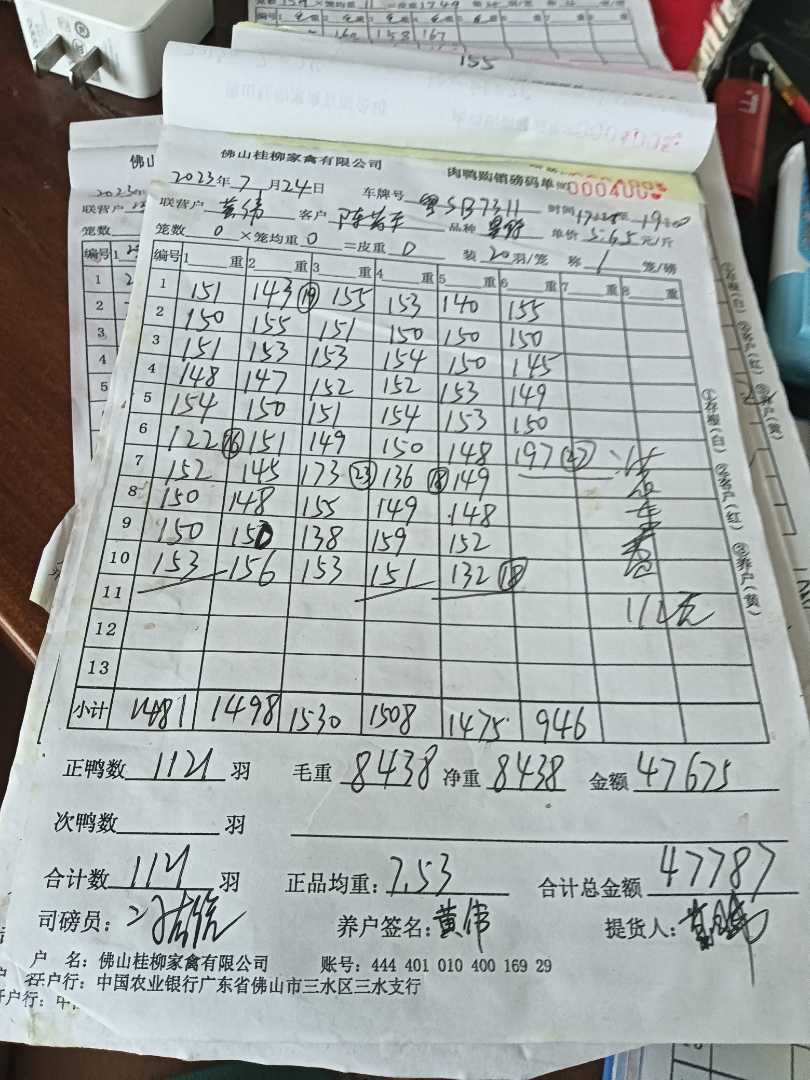 155
佛山桂柳家禽有限公司
肉鸭购销磅码单 №
2023年7月24日 车牌号 粤SB73H 时间
联营户 黄伟 客户 品种 单价 5.65 元/斤
笼数 0 ×笼均重 0 =皮重 0 装 20 羽/笼 称 1 笼/磅
编号 1 重 2 重 3 重 4 重 5 重 6 重 7 重 8 重
1 151 143 (19) 155 153 140 155
2 150 155 151 150 150 150
3 151 153 153 154 150 145
4 148 147 152 152 153 149
5 154 150 151 154 153 150
6 122 (16) 151 149 150 148 197 (27)
7 152 145 173 (23) 136 (18) 149
8 150 148 155 149 148
9 150 150 138 159 152
10 153 156 153 151 132 (18)
11 112元
12
13
小计 1481 1498 1530 1508 1475 946
①存根(白) ②客户(红) ③养户(黄)
正鸭数 1121 羽 毛重 8438 净重 8438 金额 47675
次鸭数 羽
合计数 1121 羽 正品均重: 7.53 合计总金额 47787
司磅员: 养户签名: 黄伟 提货人:
户 名: 佛山桂柳家禽有限公司 账号: 444 401 010 400 169 29
开户行: 中国农业银行广东省佛山市三水区三水支行